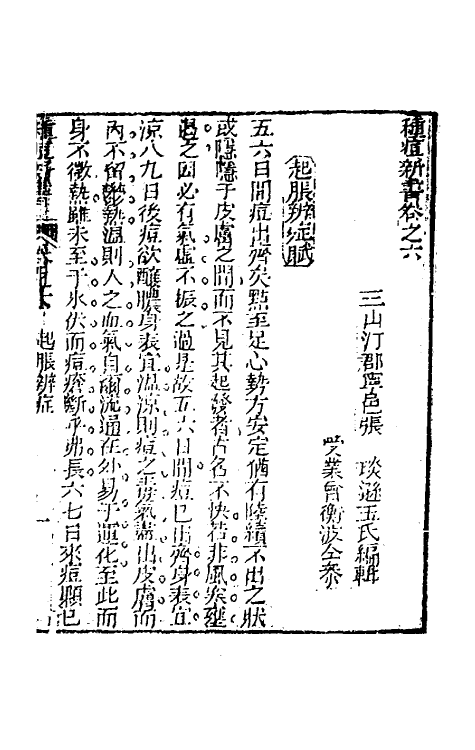 種痘新書卷之六
三山汀郡寧邑張 琰遜玉氏編輯
受業曾衡波仝叅
起脹辨症賦
五六日間痘出齊矣點至足心勢方安定猶有陸續不出之狀
或隱隱于皮膚之間而不見其起發者占名不快若非風寒壅
遏之因必有氣虛不振之過是故五六日間痘已出齊身表宜
凉八九日後痘欲釀膿身表宜溫凉則痘之毒氣盡出皮膚而
內不留鬱熱溫則人之血氣自爾流通在外易于運化至此而
身不微熱雖未至于氷伏而痘瘡斷乎弗長六七日來痘顆已
種痘新書 卷之六 起脹辨症